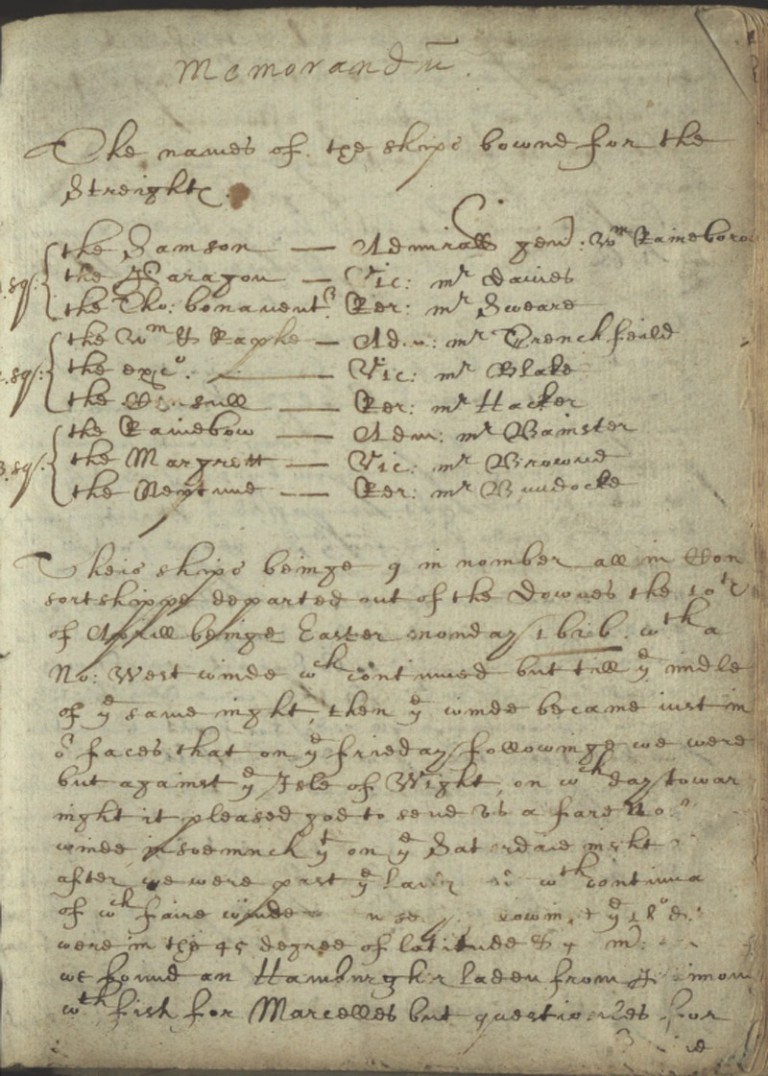 Memorandū
The names of the ships bownd for the
Streights.
the Samson — Admirall genr̄: Wm Raineborow
the — Vic: mr Davies
the Tho: bonaventr Rer: mr Sweare
the Wm & Raphe — Adm: mr Trenchfeild
the — Vic: mr Blake
the — Rer: mr Hacker
the Rainebow — Adm: mr Bamster
the Margrett — Vic: mr Browne
the Neptune — Rer: mr
3. sq:
Theis ships beinge 9 in nomber all in Con
sortshippe departed out of the Downes the 10th
of Aprill beinge Easter monday 1626. wth a
No: West winde wch continued but till ye midle
of ye same night, then ye winde became iust in
or faces, that on ye frieday followinge we were
but against ye Isle of Wight, on wch day towar
night it pleased god to send us a fare No:
winde insoemuch yt on ye Saterdaie night
after we were past ye wth continua
of wch faire winde ye 18
were in the 45 degree of latitude & m:
we found an Hamburgher laden from
wth fish for Marcelles but questiones for